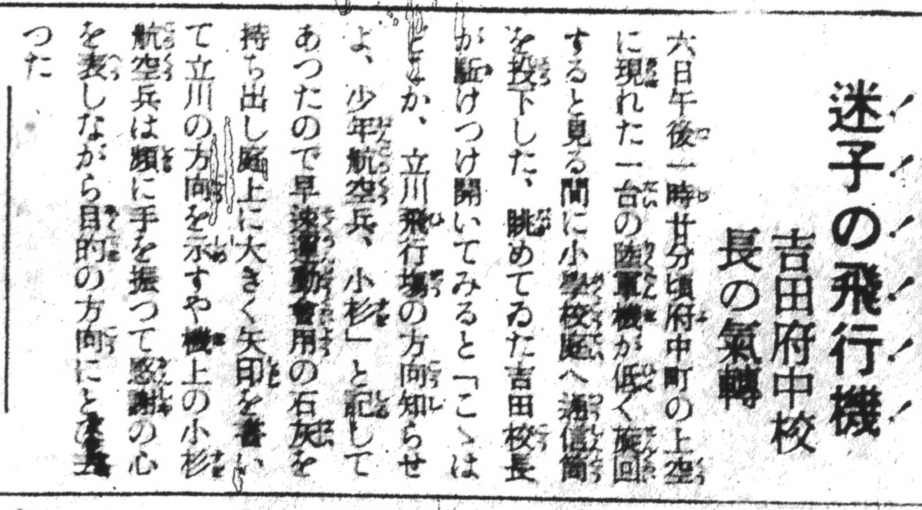 迷子の飛行機
吉田府中校
長の氣轉
六日午後一時廿分頃府中町の上空
に現れた一台の陸軍機が低く旋回
すると見る間に小學校庭へ通信筒
を投下した、眺めてゐた吉田校長
が駈けつけ開いてみると「こゝは
どこか、立川飛行場の方向知らせ
よ、少年航空兵、小杉」と記して
あつたので早速運動會用の石灰を
持ち出し庭上に大きく矢印を書い
て立川の方向を示すや機上の小杉
航空兵は頻に手を振つて感謝の心
を表しながら目的の方向にとび去
つた